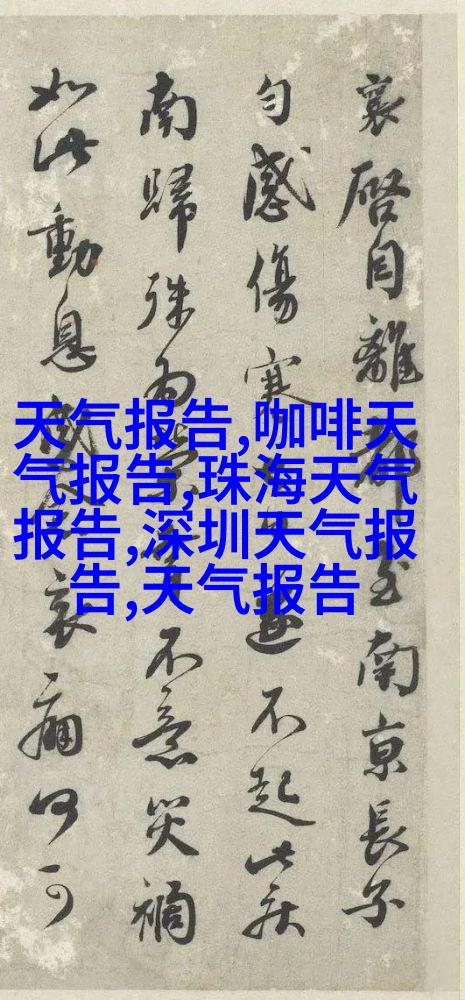 襄啓自離都至南京長子
匀感傷寒遂不起此疾
南歸殊為不意災禍
如此動息哀痛何可
天气报告,咖啡天
气报告,珠海天气
报告,深圳天气报
告,天气报告